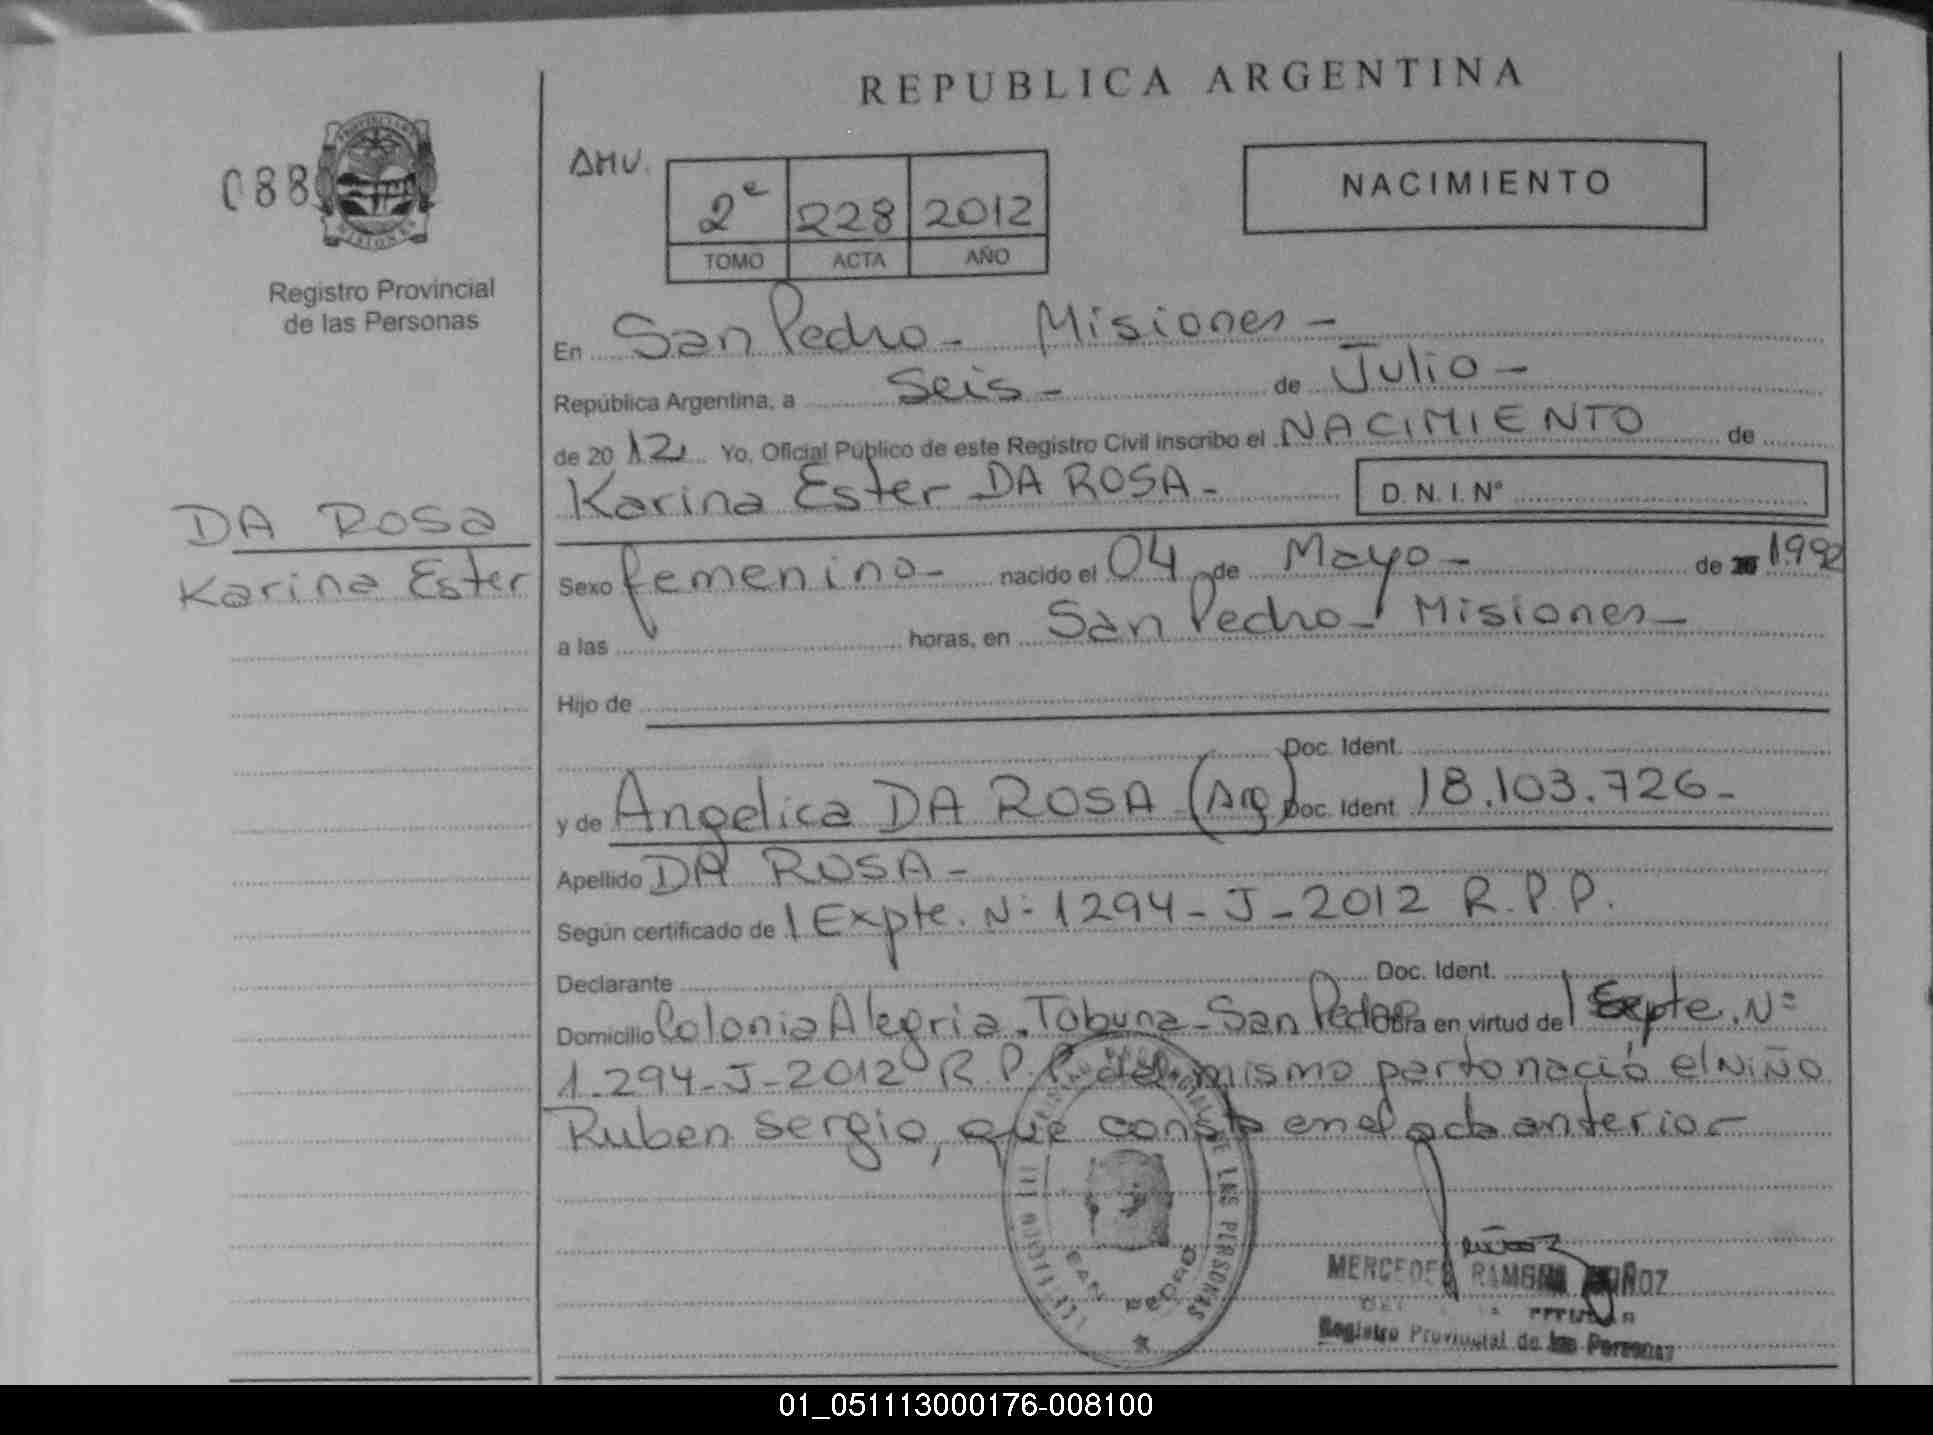 REPUBLICA ARGENTINA
088
PROVINCIA DE MISIONES
Registro Provincial
de las Personas
AMU.
2º 228 2012
TOMO ACTA AÑO
NACIMIENTO
En San Pedro - Misiones -
República Argentina, a Seis - de Julio -
de 2012 Yo, Oficial Público de este Registro Civil inscribo el NACIMIENTO de
Karina Ester DA ROSA - D. N. I. Nº
DA ROSA
Karina Ester
Sexo femenino - nacido el 04 de Mayo - de 1992
a las horas, en San Pedro - Misiones -
Hijo de
Doc. Ident.
y de Angelica DA ROSA (Arg) Doc. Ident 18.103.726 -
Apellido DA ROSA -
Según certificado de Expte. N: 1294 - J - 2012 R.P.P.
Declarante Doc. Ident.
Domicilio Colonia Alegria. Tobuna - San Pedro Obra en virtud de Expte. N=
1.294 - J - 2012 R.P.P. del mismo parto nació el Niño
Ruben Sergio, que consta en el acta anterior -
DE LAS PERSONAS
SAN PEDRO
MERCEDES RAMONA MUÑOZ
TITULAR
Registro Provincial de las Personas
01_051113000176-008100